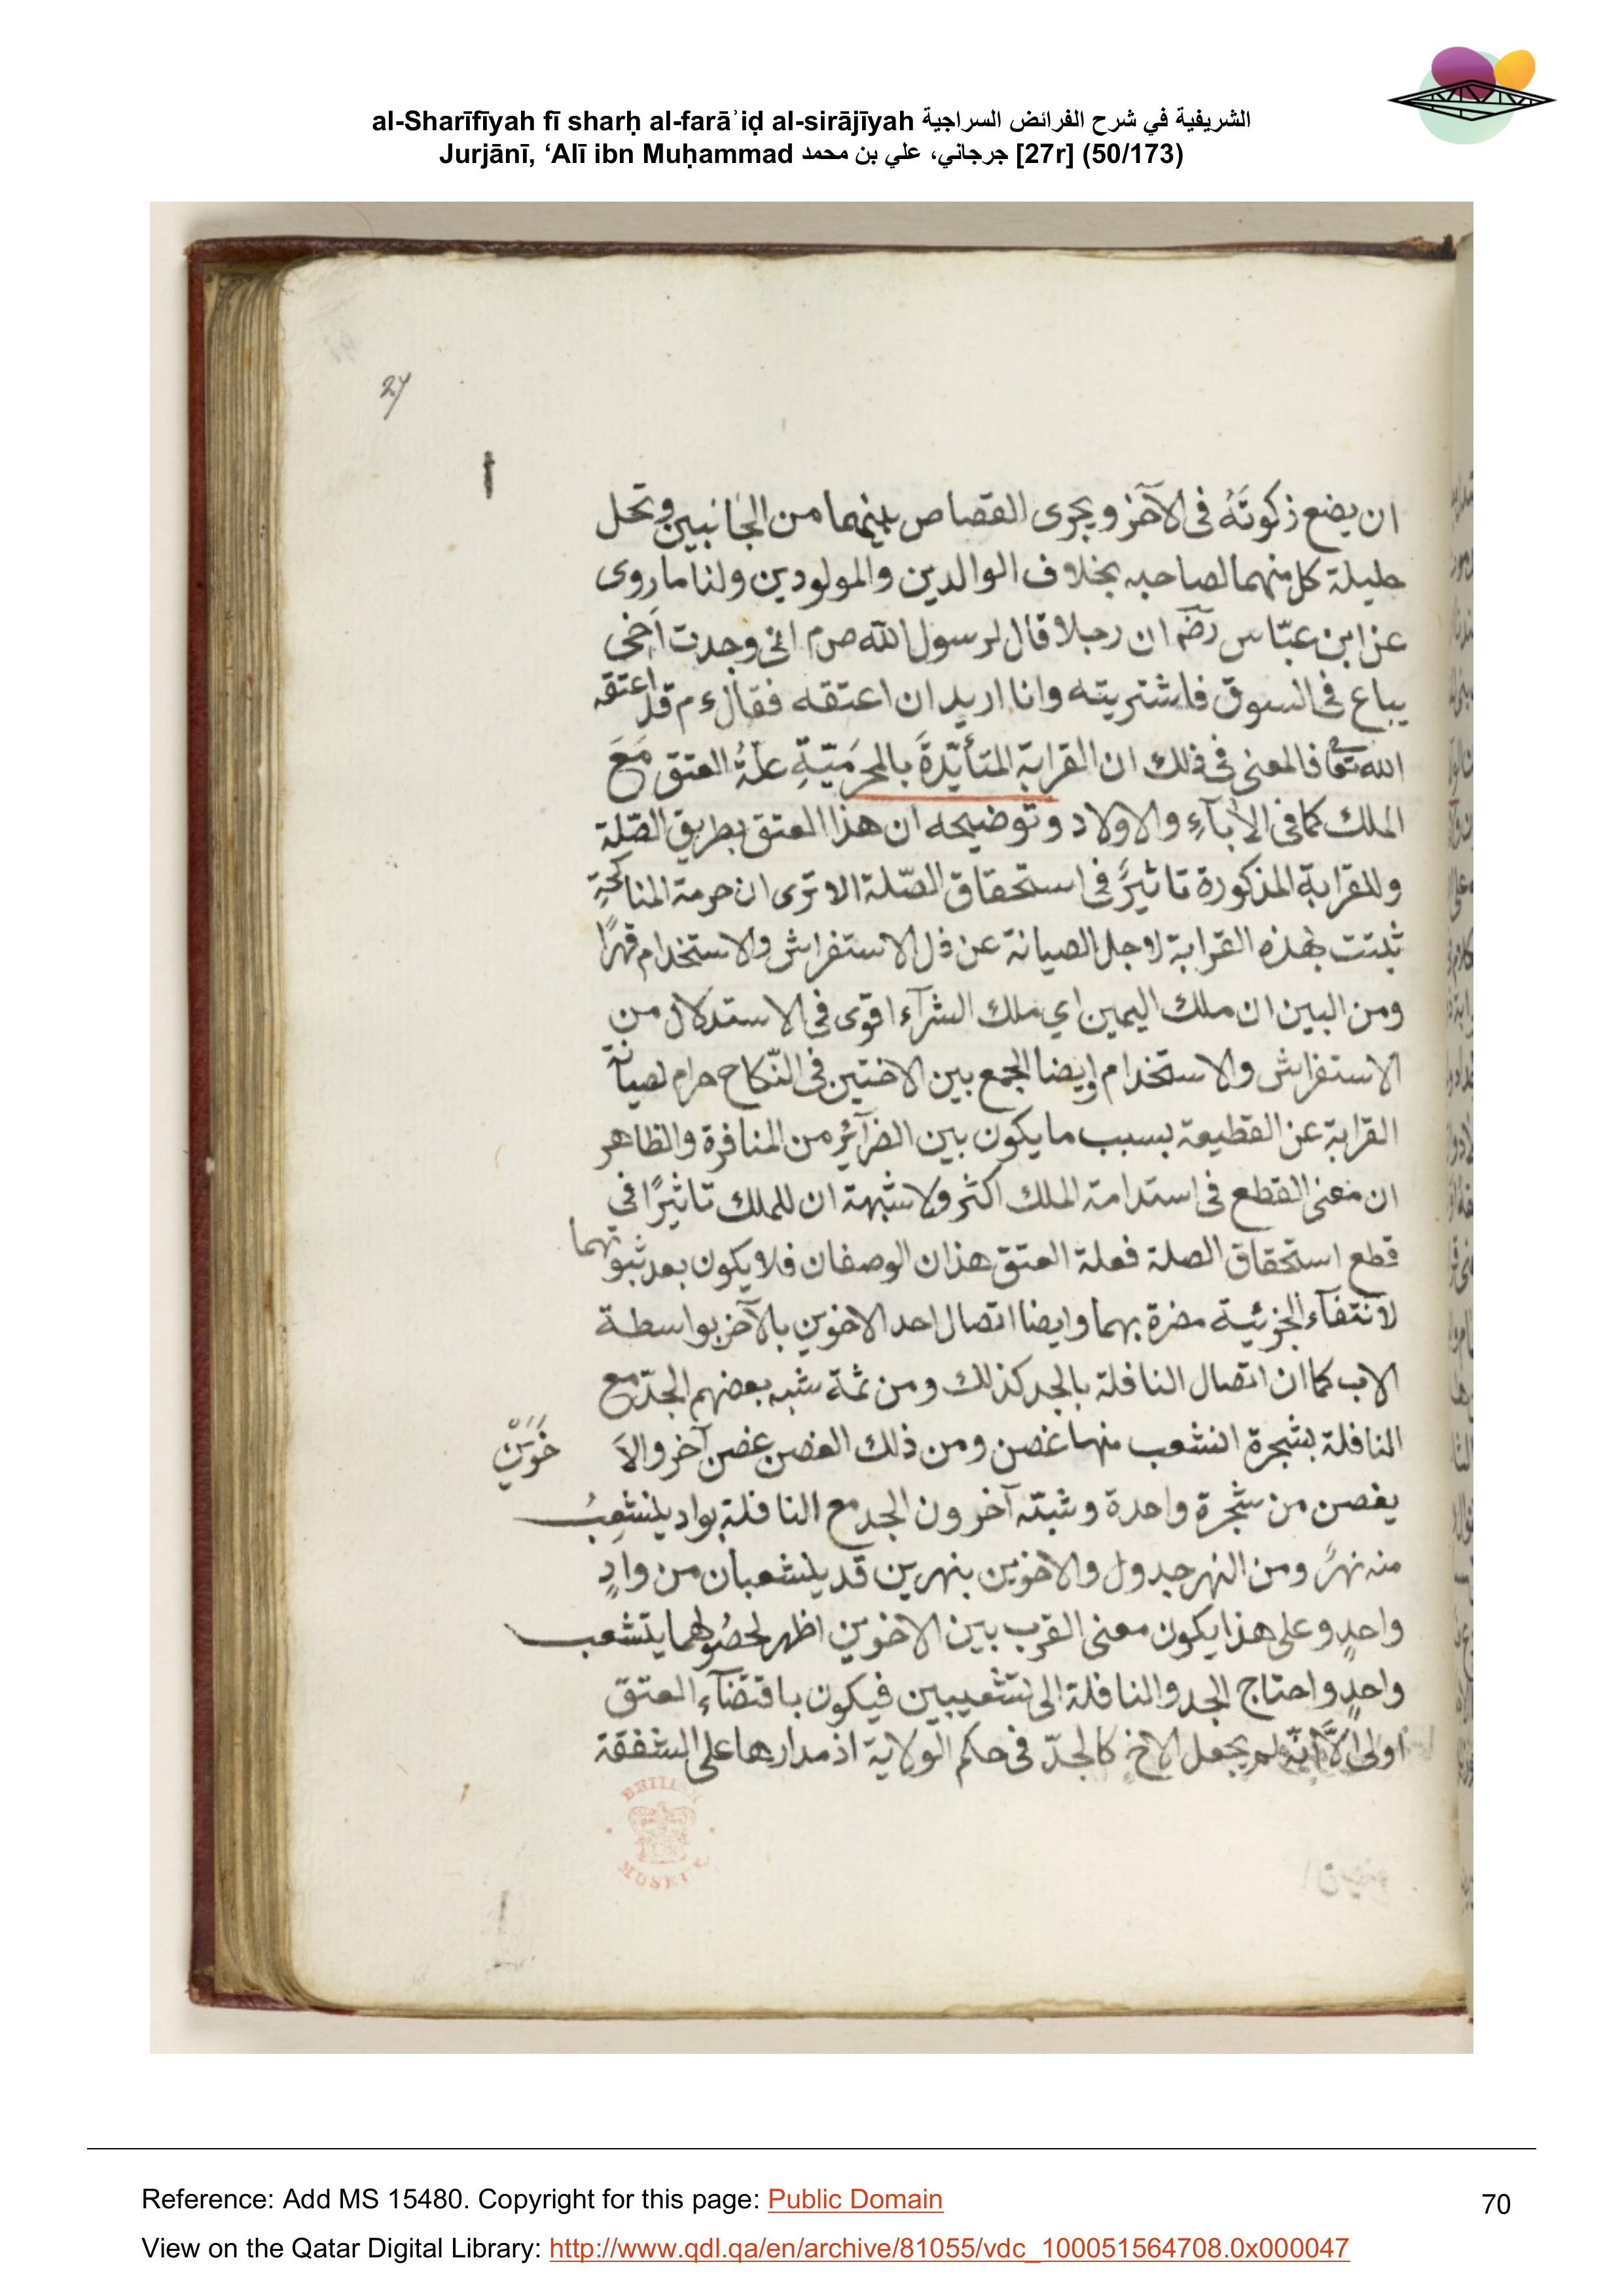 al-Sharīfīyah fī sharḥ al-farāʾiḍ al-sirājīyah الشريفية في شرح الفرائض السراجية
Jurjānī, ‘Alī ibn Muḥammad جرجاني، علي بن محمد [27r] (50/173)
27
ان يضع زكوتَهُ فى الآخر ويجرى القصاص بينهما من الجانبين وتحل
حليلة كل منهما لصاحبه بخلاف الوالدين والمولودين ولنا ما روى
عن ابن عبّاس رضـ ان رجلا قال لرسول الله صم انى وجدت اَخى
يباع فى السوق فاشتريته وانا اريد ان اعتقه فقال ءم قد اعتقه
الله تعـ فالمعنى فى ذلك ان القرابة المتأيّدةَ بالمحرَميّةِ علةُ العتق مَعَ
الملك كما فى الاٰباءِ والاولاد وتوضيحه ان هذا العتق بطريق الصّلة
وللقرابة المذكورة تاثيرً فى استحقاق الصّلة الا ترى ان حرمة المناكحةِ
ثبتت بهذه القرابة لاجل الصيانة عن ذل الاستفراش والاستخدام قهرًا
ومن البين ان ملك اليمين اي ملك الشرآء اقوى فى الاستدلال من
الاستفراش والاستخدام وايضا الجمع بين الاختين فى النّكاح حرام لصيانة
القرابة عن القطيعة بسبب ما يكون بين الضرآئر من المنافرة والظاهر
ان معنى القطع فى استدامة الملك اكثر ولا شبهة ان للملك تاثيرًا فى
قطع استحقاق الصلة فعلة العتق هذان الوصفان فلا يكون بعد ثبوتهما
لانتفاء الجزئية مضرة بهما وايضا اتصال احد الاخوين بالآخر بواسطة
الاب كما ان اتصال النافلة بالجد كذلك ومن ثمة شبه بعضهم الجدّ مع
النافلة بشجرة انشعب منها غصن ومن ذلك الغصن غصن آخر والاَ خَوَينْ
يغصن من شجرة واحدة وشبّه آخرون الجد مع النافلة بواد ينشعِبُ
منه نهرً ومن النهر جدول والاخوين بنهرين قد ينشعبان من وادٍ
واحدٍ وعلى هذا يكون معنى القرب بين الاخوين اظهر لحصُولهما يتشعب
واحدٍ واحتاج الجد والنافلة الى تشعيبين فيكون باقتضآء العتق
اولى الاَّ انّه لم يجعل الاخ كالجدّ فى حكم الولاية اذ مدارها على الشفقة
BRITISH
MUSEUM
Reference: Add MS 15480. Copyright for this page: Public Domain
70
View on the Qatar Digital Library: http://www.qdl.qa/en/archive/81055/vdc_100051564708.0x000047